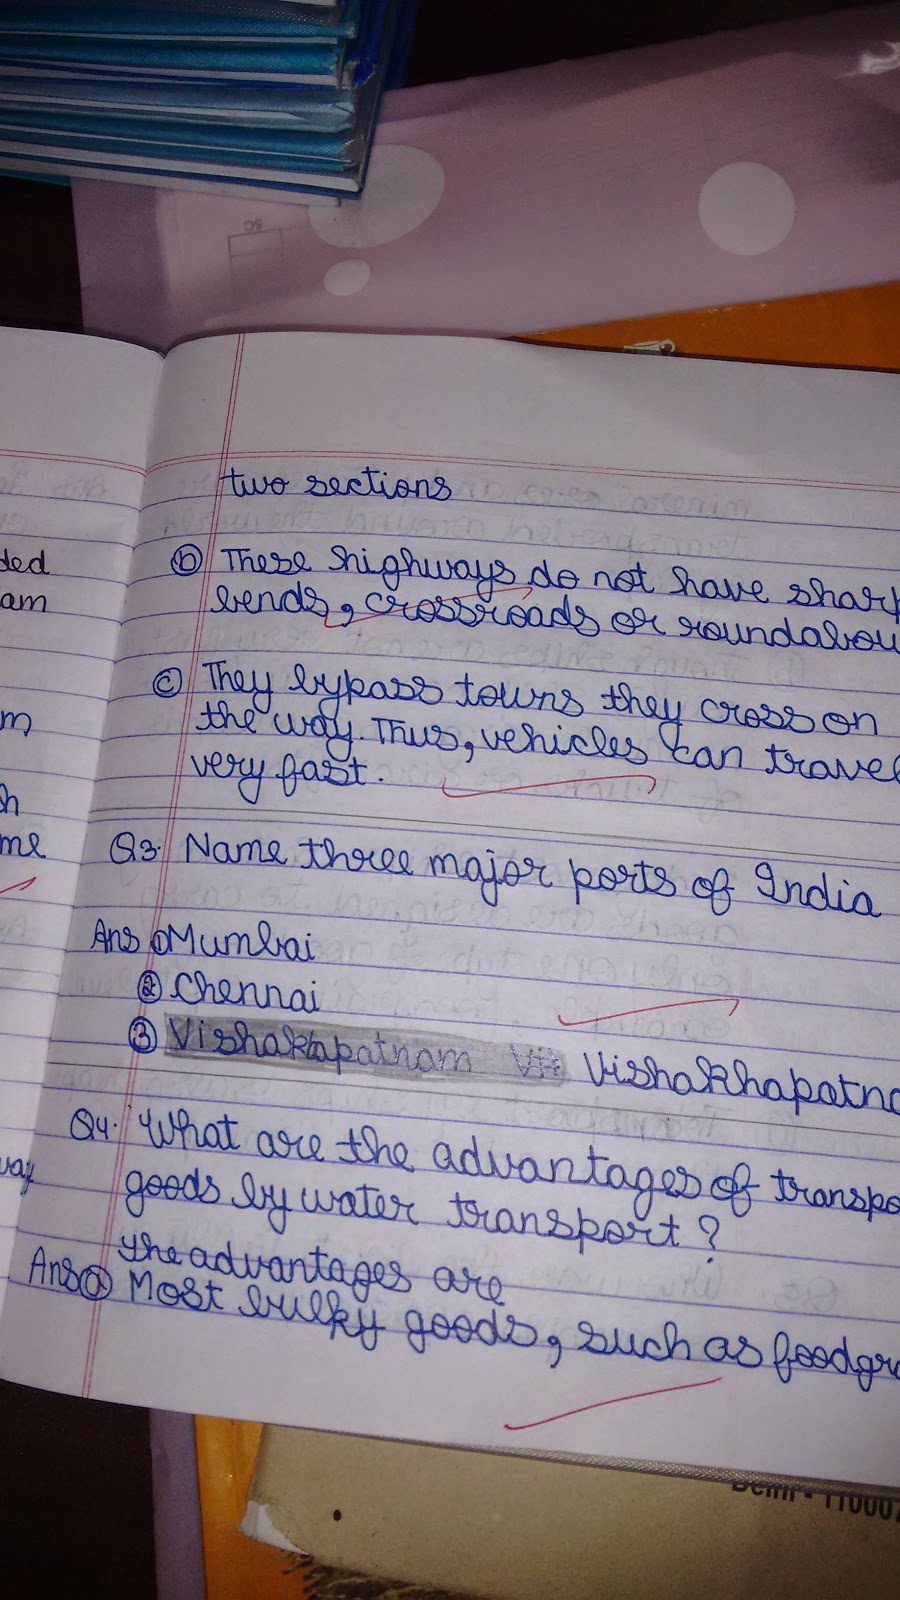 5C
two sections
ⓑ These highways do not have shar
bends, crossroads or roundabou
ⓒ They bypass towns they cross on
the way. Thus, vehicles can trave
very fast.
Q3. Name three major ports of India
Ans ① Mumbai
② Chennai
③ Vishakhapatnam Vis Vishakhapatna
Q4. What are the advantages of transpo
goods by water transport?
The advantages are
Ans ⓐ Most bulky goods, such as foodgra
ded
am
m
h
me
way
Delhi - 110007